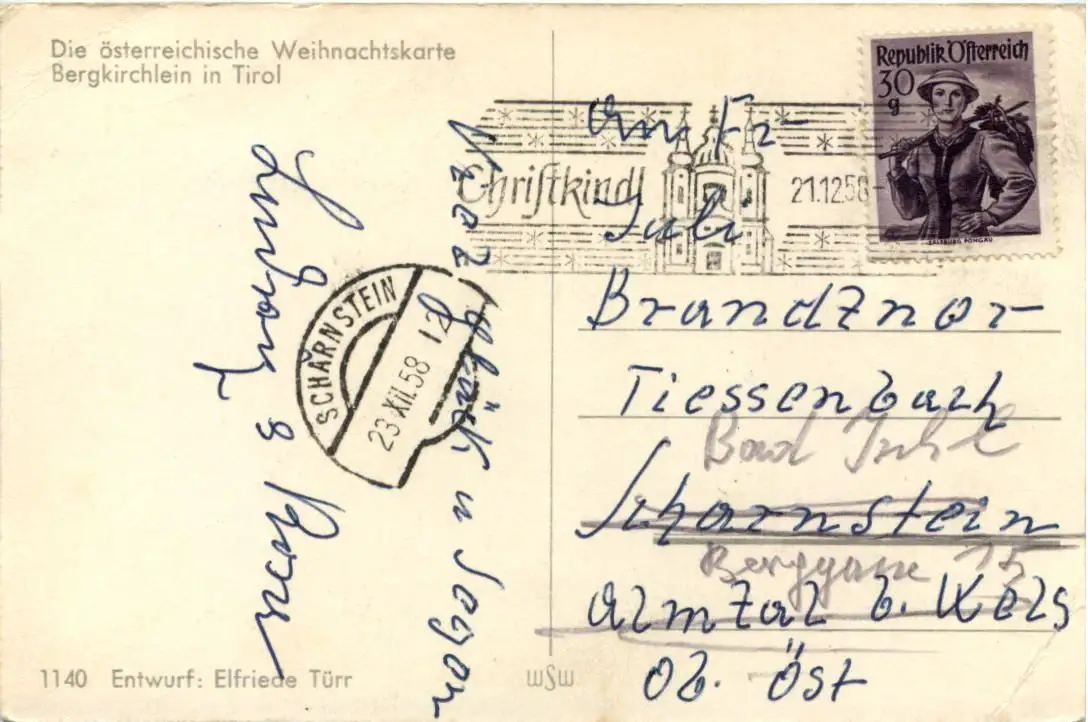 Die österreichische Weihnachtskarte
Bergkirchlein in Tirol
Republik Österreich
30
g
SALZBURG PONGAU
Christkindl
21.12.58
An Fr
Juli
Brandznor
Tiessenbach
Bad Ischl
Scharnstein
Berggasse 15
Almtal b. Wels
Ob. Öst
SCHARNSTEIN
23.XII.58 12
Glück u Segen
1140 Entwurf: Elfriede Türr
WSW